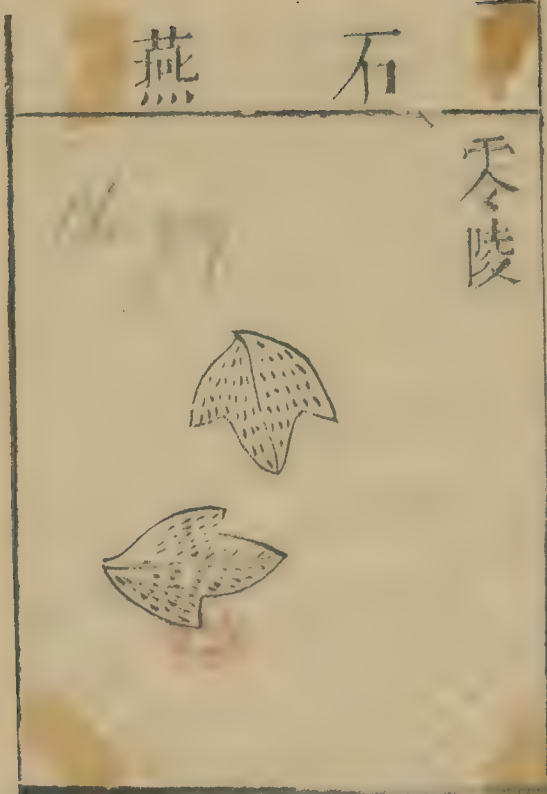 石燕
零陵